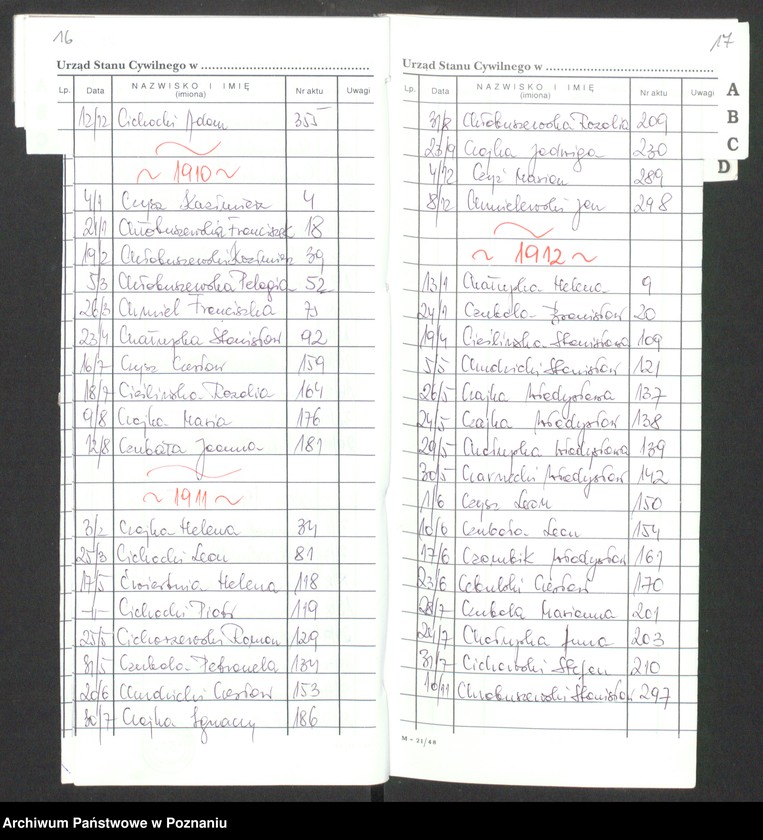 16
Urząd Stanu Cywilnego w
Lp. Data NAZWISKO I IMIĘ (imiona) Nr aktu Uwagi
12/12 Cichocki Adam 355
~ 1910 ~
4/1 Czysz Kazimierz 4
21/1 Chłobuszewski Franciszek 18
19/2 Chłobuszewski Kazimierz 39
5/3 Chłobuszewska Pelagia 52
26/3 Chmiel Franciszka
23/4 Chałupka Stanisław 92
16/7 Czysz Czesław 159
18/7 Cieślińska Rozalia 164
9/8 Czajka Maria 176
12/8 Czubała Joanna 181
~ 1911 ~
3/2 Czajka Helena 34
25/3 Cichocki Leon 81
17/5 Ćwiertnia Helena 118
-"- Cichocki Piotr 119
25/5 Cichoszewski Roman 129
31/5 Czubała Petronela 134
20/6 Chudzicki Czesław 153
30/7 Czajka Ignacy 186
17
Urząd Stanu Cywilnego w
Lp. Data NAZWISKO I IMIĘ (imiona) Nr aktu Uwagi
31/8 Chłobuszewska Rozalia 209
23/9 Czajka Jadwiga 230
4/12 Czyż Marian 289
8/12 Chmielewski Jan 298
~ 1912 ~
13/1 Chałupka Helena 9
24/1 Czubała Bronisław 20
19/4 Cieślińska Stanisława 109
5/5 Chudzicki Stanisław 121
26/5 Czajka Władysława 137
24/5 Czajka Władysław 138
29/5 Chałupka Władysława 139
30/5 Czarnecki Władysław 142
1/6 Czysz Leon 150
10/6 Czubała Leon 154
17/6 Czombik Władysław 161
23/6 Czesław 170
28/7 Czubała Marianna 201
28/7 Chałupka Anna 203
31/7 Cichowski Stefan 210
10/11 Chłobuszewski Stanisław 297
M - 21/48
A
B
C
D
Archiwum Państwowe w Poznaniu